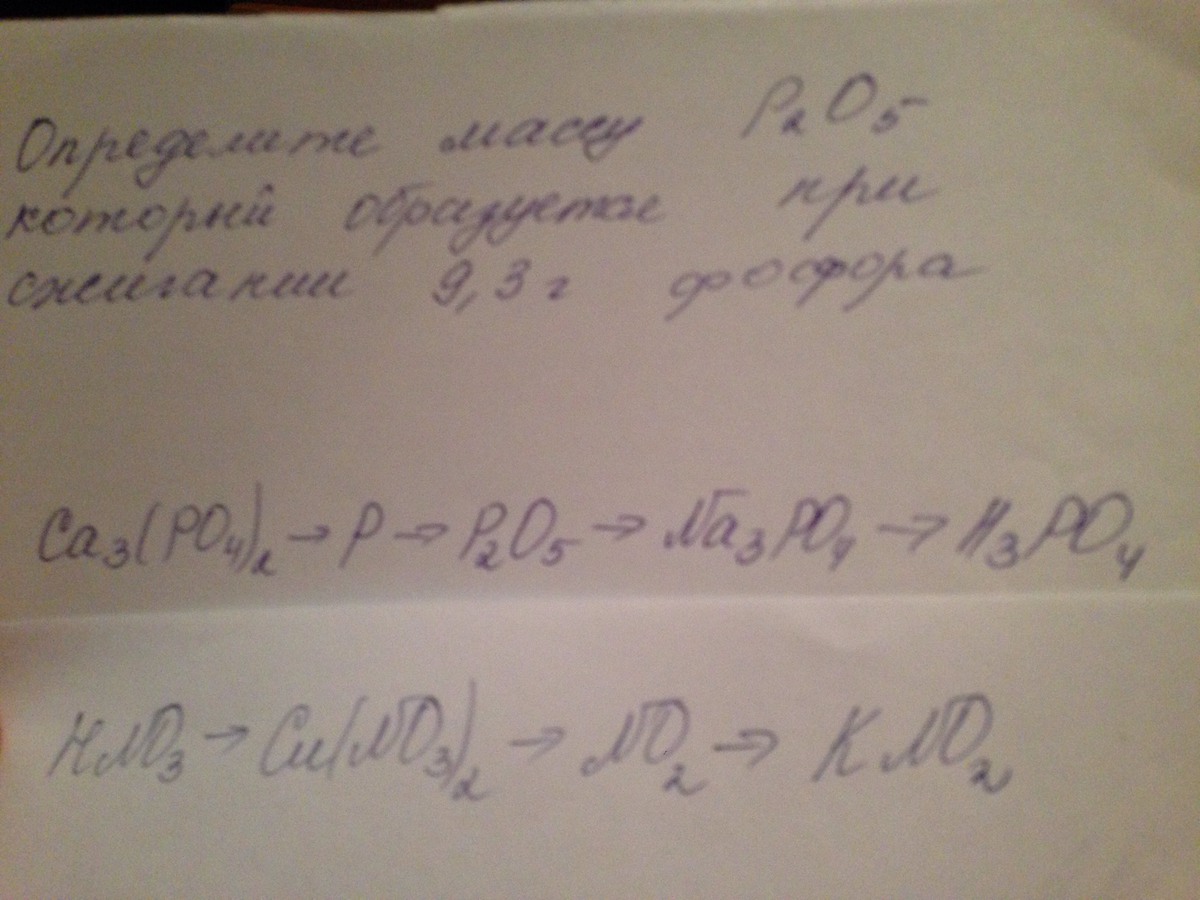 Определите массу P₂O₅
который образуется при
сжигании 9,3 г фосфора
Ca₃(PO₄)₂ → P → P₂O₅ → Na₃PO₄ → H₃PO₄
HNO₃ → Cu(NO₃)₂ → NO₂ → KNO₂